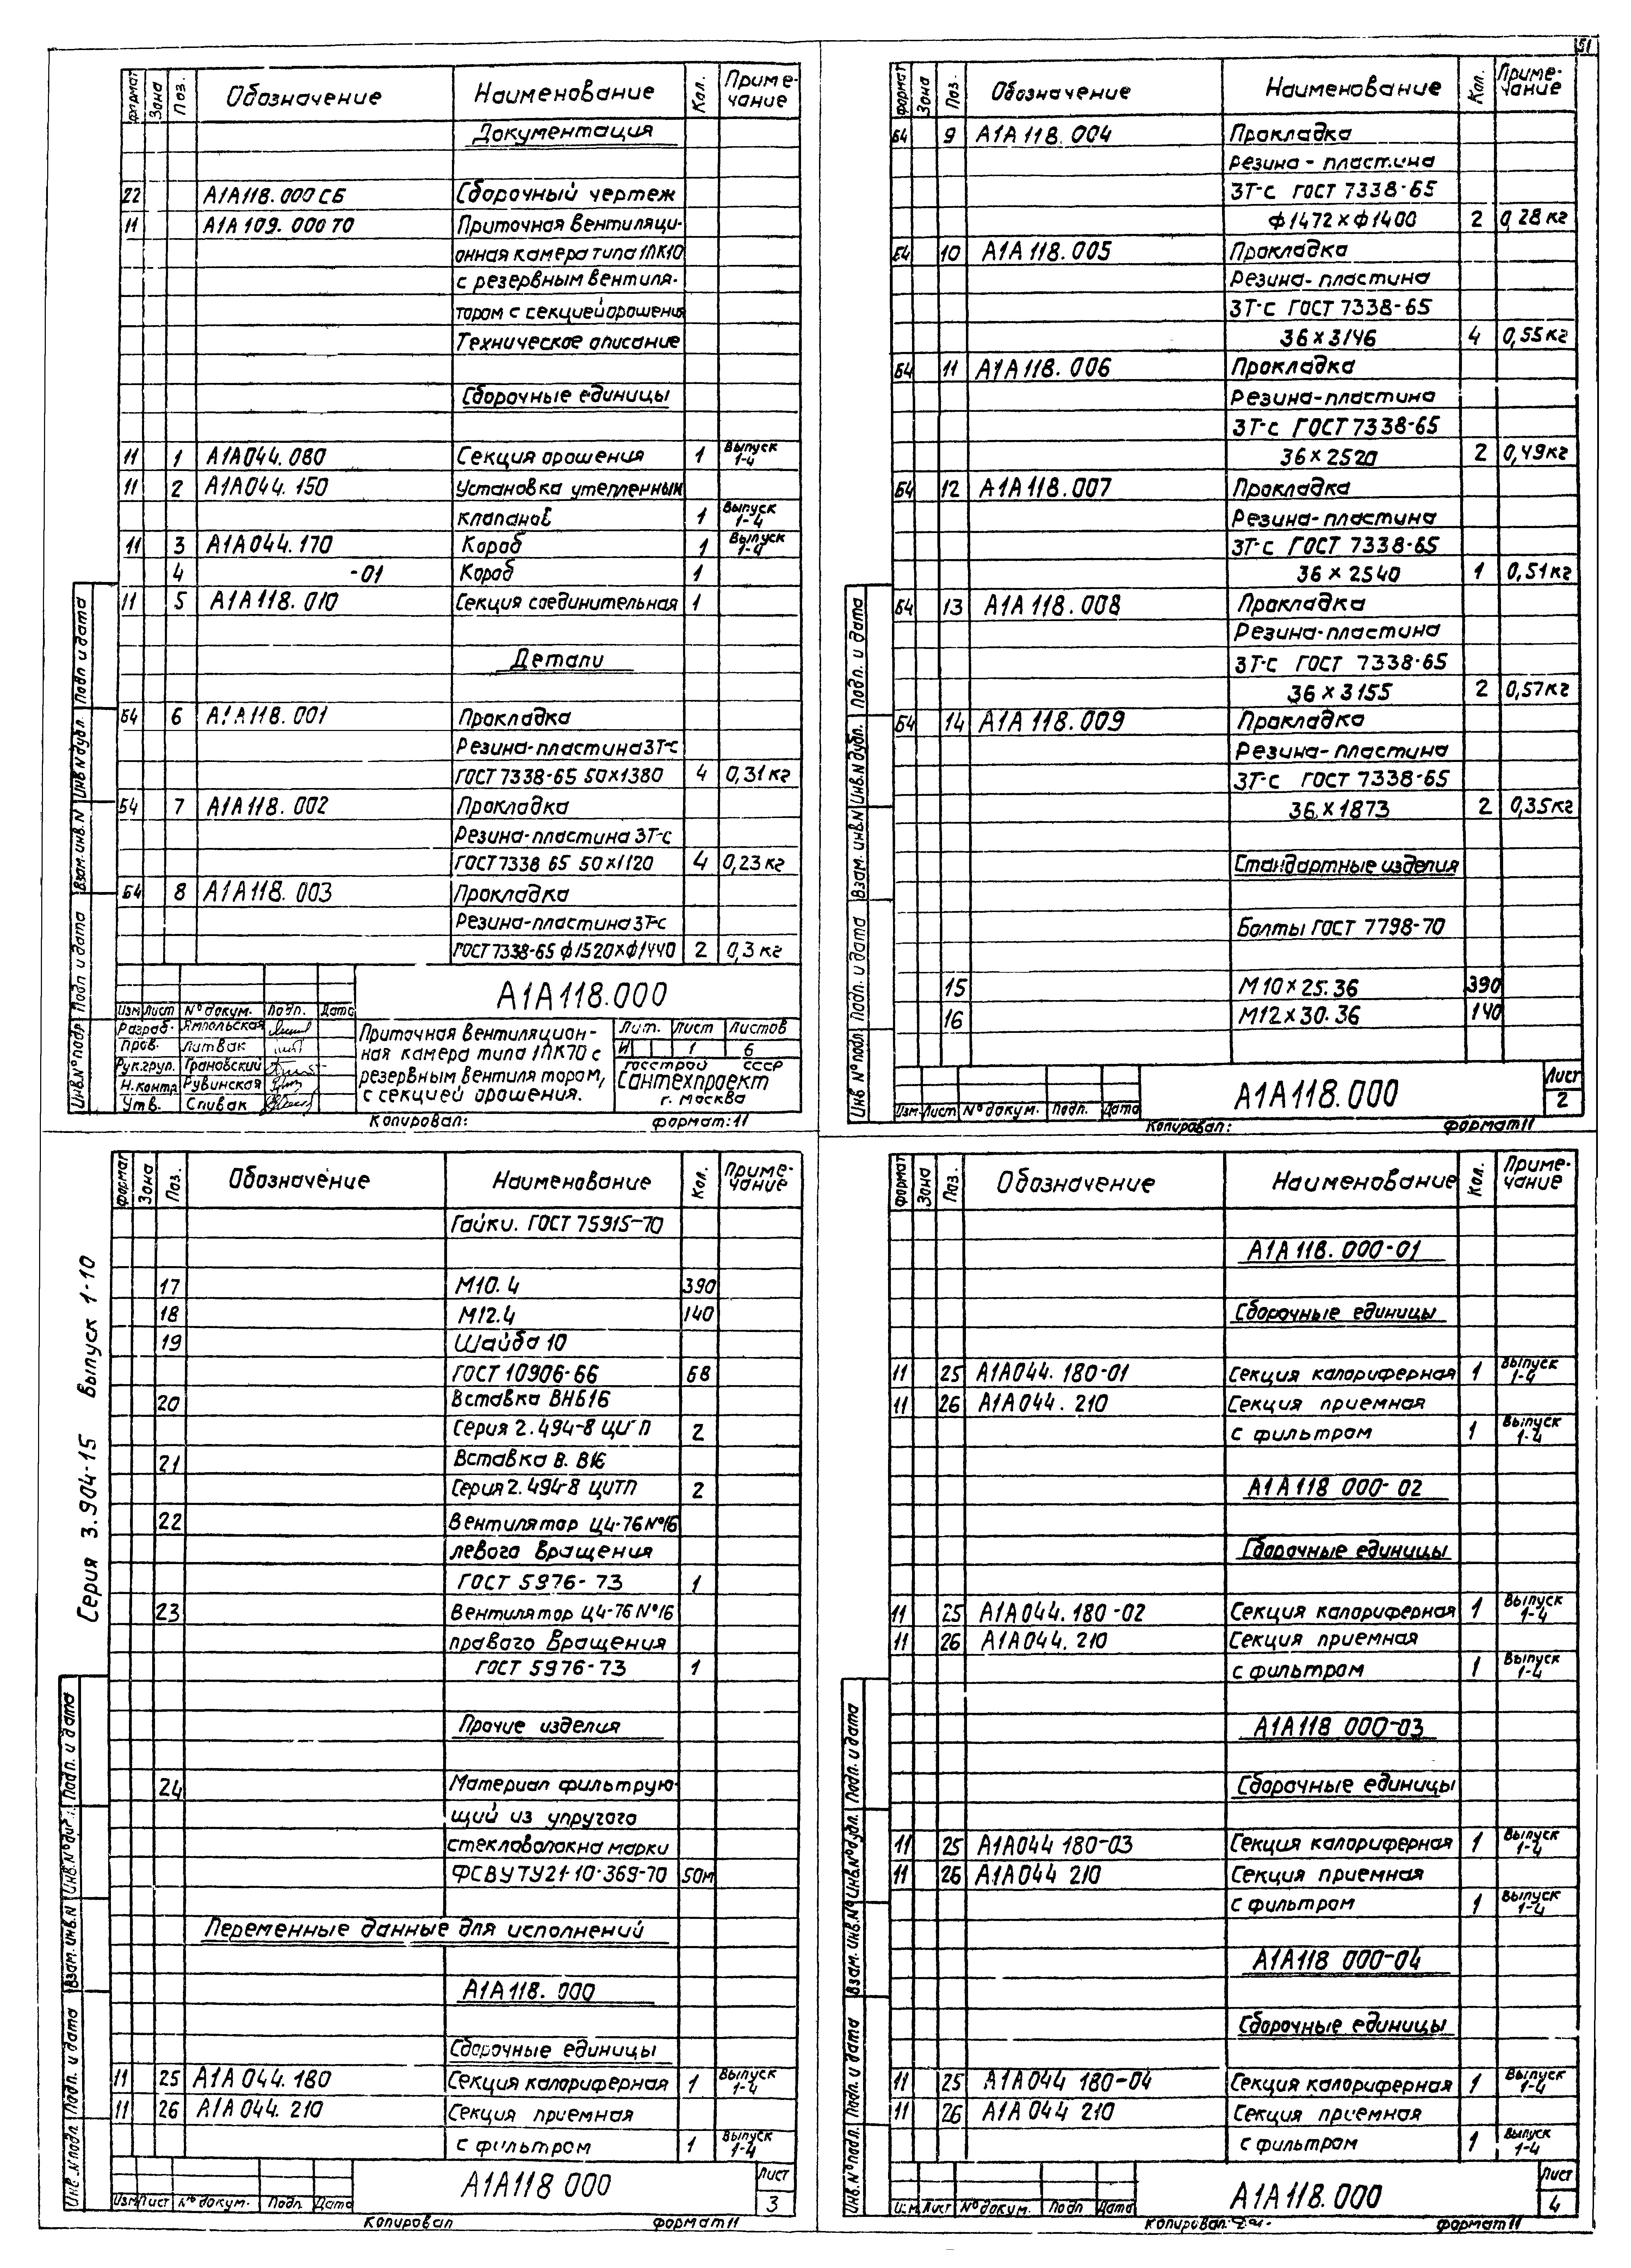 51
формат Зона Поз. Обозначение Наименование Кол. Приме-
чание
Документация
22 А1А118.000 СБ Сборочный чертеж
11 А1А 109. 000 ТО Приточная вентиляци-
онная камера типа 1ПК10
с резервным вентиля-
тором с секцией орошения
Техническое описание
Сборочные единицы
11 1 А1А044.080 Секция орошения 1 Выпуск
1-4
11 2 А1А044.150 Установка утепленных
клапанов 1 Выпуск
1-4
11 3 А1А044.170 Короб 1 Выпуск
1-4
4 -01 Короб 1
11 5 А1А118.010 Секция соединительная 1
Детали
Б4 6 А1А118.001 Прокладка
Резина-пластина 3Т-с
ГОСТ 7338-65 50×1380 4 0,31 кг
Б4 7 А1А118.002 Прокладка
Резина-пластина 3Т-с
ГОСТ 7338 65 50×1120 4 0,23 кг
Б4 8 А1А118.003 Прокладка
Резина-пластина 3Т-с
ГОСТ 7338-65 ф1520×ф1440 2 0,3 кг
Инв.№ подр. Подп и дата Взам. инв.N Инв.N дубл. Подп и дата
Изм Лист № докум. Подп. Дата
Разраб. Ямпольская
Пров. Литвак
Рук.груп. Грановский
Н.контр Рувинская
Утв. Спивак
А1А118.000
Приточная вентиляцион-
ная камера типа 1ПК70 с
резервным вентилятором,
с секцией орошения.
Лит. Лист Листов
И 1 6
госстрой СССР
Сантехпроект
г. Москва
Копировал: формат:11
формат Зона Поз. Обозначение Наименование Кол. Приме-
чание
Б4 9 А1А118.004 Прокладка
Резина - пластина
3Т-с ГОСТ 7338-65
ф1472×ф1400 2 0,28 кг
Б4 10 А1А118.005 Прокладка
Резина-пластина
3Т-с ГОСТ 7338-65
36×3146 4 0,55кг
Б4 11 А1А118.006 Прокладка
Резина-пластина
3Т-с ГОСТ 7338-65
36×2520 2 0,49кг
Б4 12 А1А118.007 Прокладка
Резина-пластина
3Т-с ГОСТ 7338-65
36×2540 1 0,51кг
Б4 13 А1А118.008 Прокладка
Резина-пластина
3Т-с ГОСТ 7338-65
36×3155 2 0,57кг
Б4 14 А1А118.009 Прокладка
Резина-пластина
3Т-с ГОСТ 7338-65
36×1873 2 0,35кг
Стандартные изделия
Болты ГОСТ 7798-70
15 М10×25.36 390
16 М12×30.36 140
Инв № подл. Подп. и дата Взам. инв.N Инв.N дубл. Подп. и дата
Изм Лист № докум. Подп. Дата
А1А118.000
Лист
2
Копировал: формат11
Серия 3.904-15 Выпуск 1-10
формат Зона Поз. Обозначение Наименование Кол. Приме-
чание
Гайки. ГОСТ 75915-70
17 М10.4 390
18 М12.4 140
19 Шайба 10
ГОСТ 10906-66 68
20 Вставка ВНБ16
Серия 2.494-8 ЦИТП 2
21 Вставка В.В16
Серия 2.494-8 ЦИТП 2
22 Вентилятор Ц4-76 №16
левого вращения
ГОСТ 5976-73 1
23 Вентилятор Ц4-76 №16
правого вращения
ГОСТ 5976-73 1
Прочие изделия
24 Материал фильтрую-
щий из упругого
стекловолокна марки
ФСВУ ТУ21-10-369-70 50м
Переменные данные для исполнений
А1А118.000
Сборочные единицы
11 25 А1А044.180 Секция калориферная 1 Выпуск
1-4
11 26 А1А044.210 Секция приемная
с фильтром 1 Выпуск
1-4
Инв.N подл. Подп. и дата Взам. инв.N Подп. и дата
Изм Лист № докум. Подп Дата
А1А118 000
Лист
3
Копировал формат11
формат Зона Поз. Обозначение Наименование Кол. Приме-
чание
А1А118.000-01
Сборочные единицы
11 25 А1А044.180-01 Секция калориферная 1 Выпуск
1-4
11 26 А1А044.210 Секция приемная
с фильтром 1 Выпуск
1-4
А1А118 000-02
Сборочные единицы
11 25 А1А044.180-02 Секция калориферная 1 Выпуск
1-4
11 26 А1А044.210 Секция приемная
с фильтром 1 Выпуск
1-4
А1А118 000-03
Сборочные единицы
11 25 А1А044 180-03 Секция калориферная 1 Выпуск
1-4
11 26 А1А044 210 Секция приемная
с фильтром 1 Выпуск
1-4
А1А118 000-04
Сборочные единицы
11 25 А1А044 180-04 Секция калориферная 1 Выпуск
1-4
11 26 А1А044 210 Секция приемная
с фильтром 1 Выпуск
1-4
Инв.№ подл. Подп. и дата Взам. инв.№ Инв.№ дубл. Подп. и дата
Изм Лист № докум. Подп Дата
А1А118.000
Лист
4
Копировал: формат11